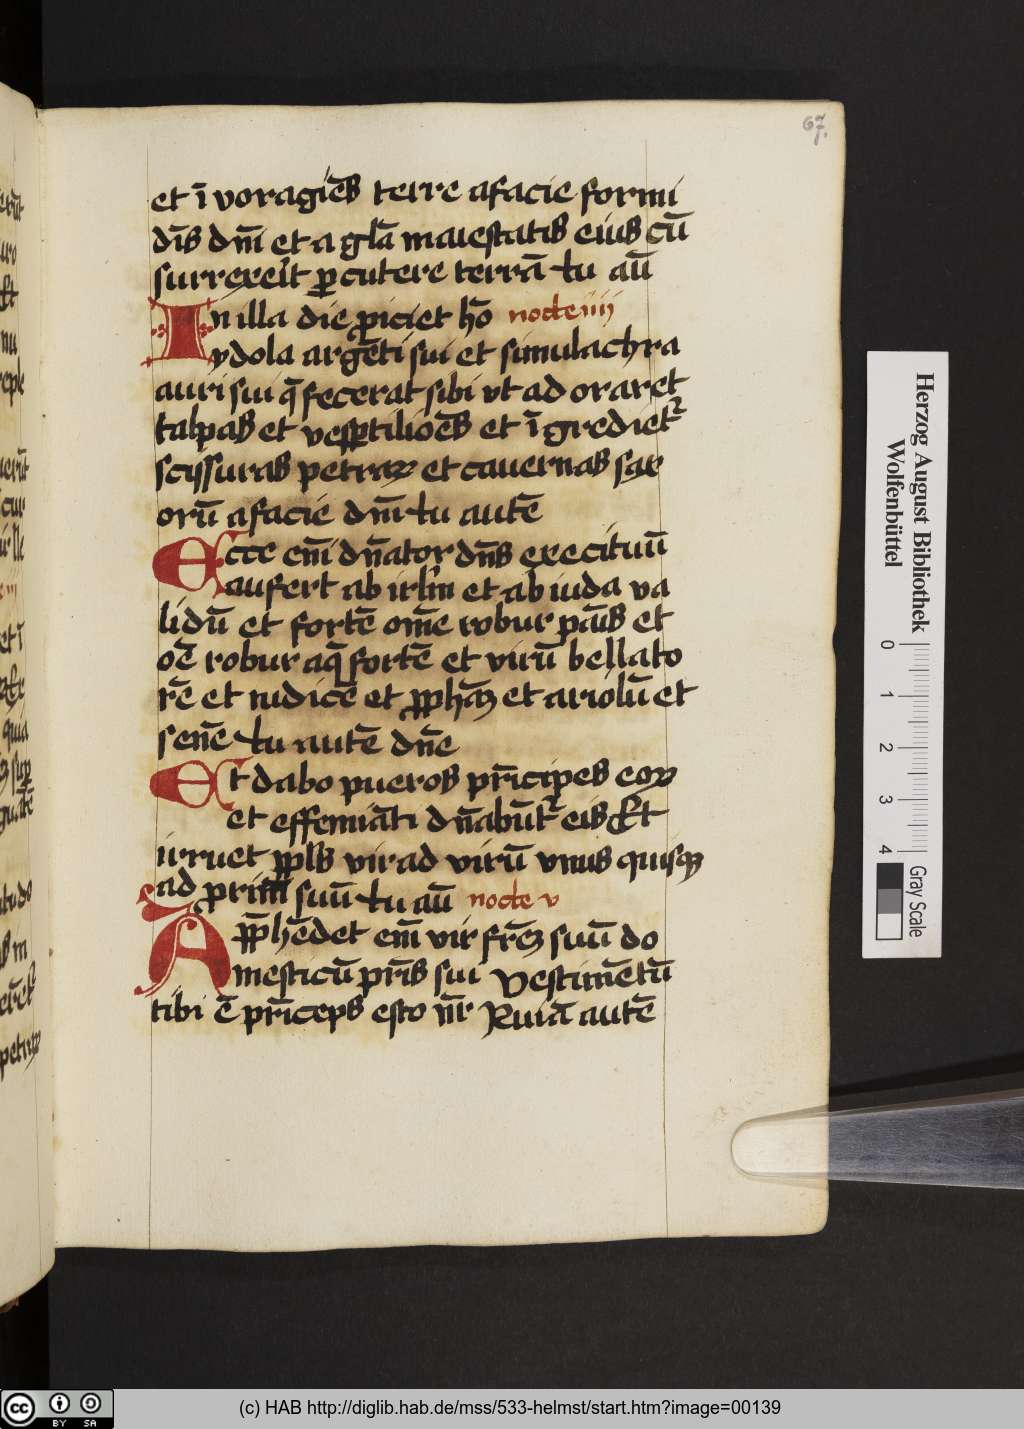 67.
et ī voragīēs terre afacie formi
dīs dn̄i et a gl̄a maiestatis eius cū
surrexeīt ꝑcutere terrā tu aū
In illa die ꝓiciet hō nocte iiii
ydola argēti sui et simulachra
auri sui q̄ fecerat sibi vt ad oraret
talpas et vesꝑtilioēs et īgrediet᷑
scissuras petraꝝ et cauernas sax
orū afacie dn̄i tu autē
Ecce em̄ dn̄ator dn̄s execituū
aufert ab irlm̄ et ab iuda va
lidū et fortē om̄e robur pāis et
oē robur aq̄ fortē et virū bellato
rē et iudicē et ꝓph̄aꝫ et ariolū et
senē tu autē dn̄e
Et dabo pueros pr̄icipes eoꝝ
et effemiāti dn̄abūt᷑ eis Et
irruet ppl̄s vir ad virū vnus quisqꝫ
ad suū tu aū nocte v
Apph̄ēdet em̄ vir fr̄eꝫ suū do
mesticū pr̄is sui vestimētū
tibi ē pr̄iceps esto nr̄ Ruiā autē
Herzog August Bibliothek
Wolfenbüttel
0 1 2 3 4
Gray Scale
cc BY SA
(c) HAB http://diglib.hab.de/mss/533-helmst/start.htm?image=00139